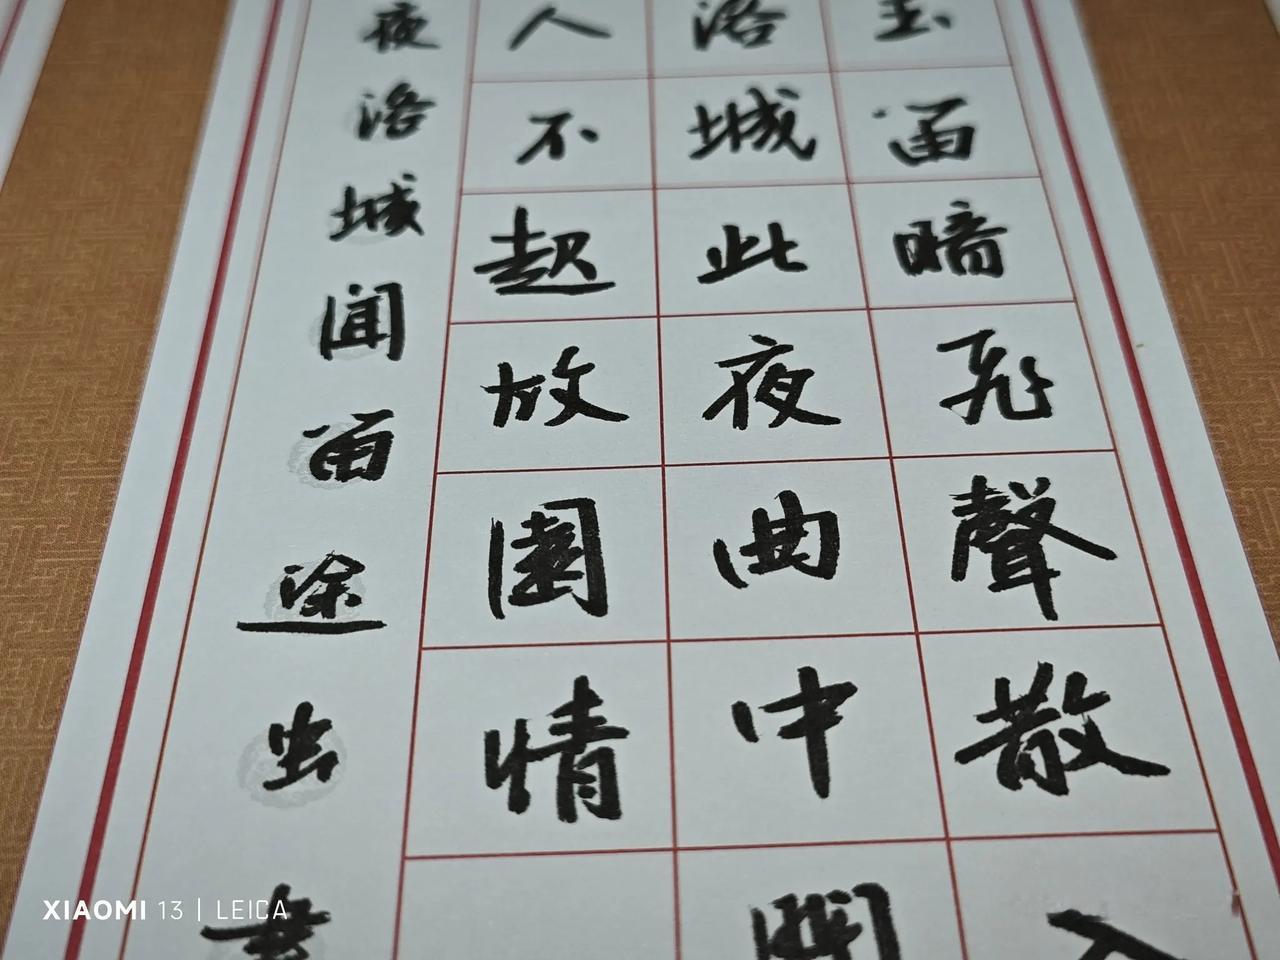 玉笛暗飛聲散入
洛城此夜曲中聞
人不起放園情
夜洛城聞笛途虫書
XIAOMI 13 | LEICA